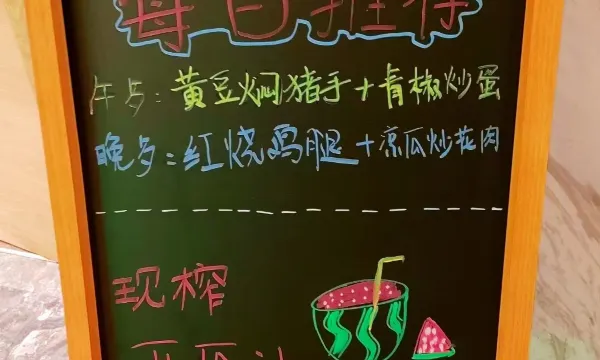 每日推荐
午多:黄豆焖猪手+青椒炒蛋
晚多:红烧鸡腿+凉瓜炒花肉
现榨
西瓜汁